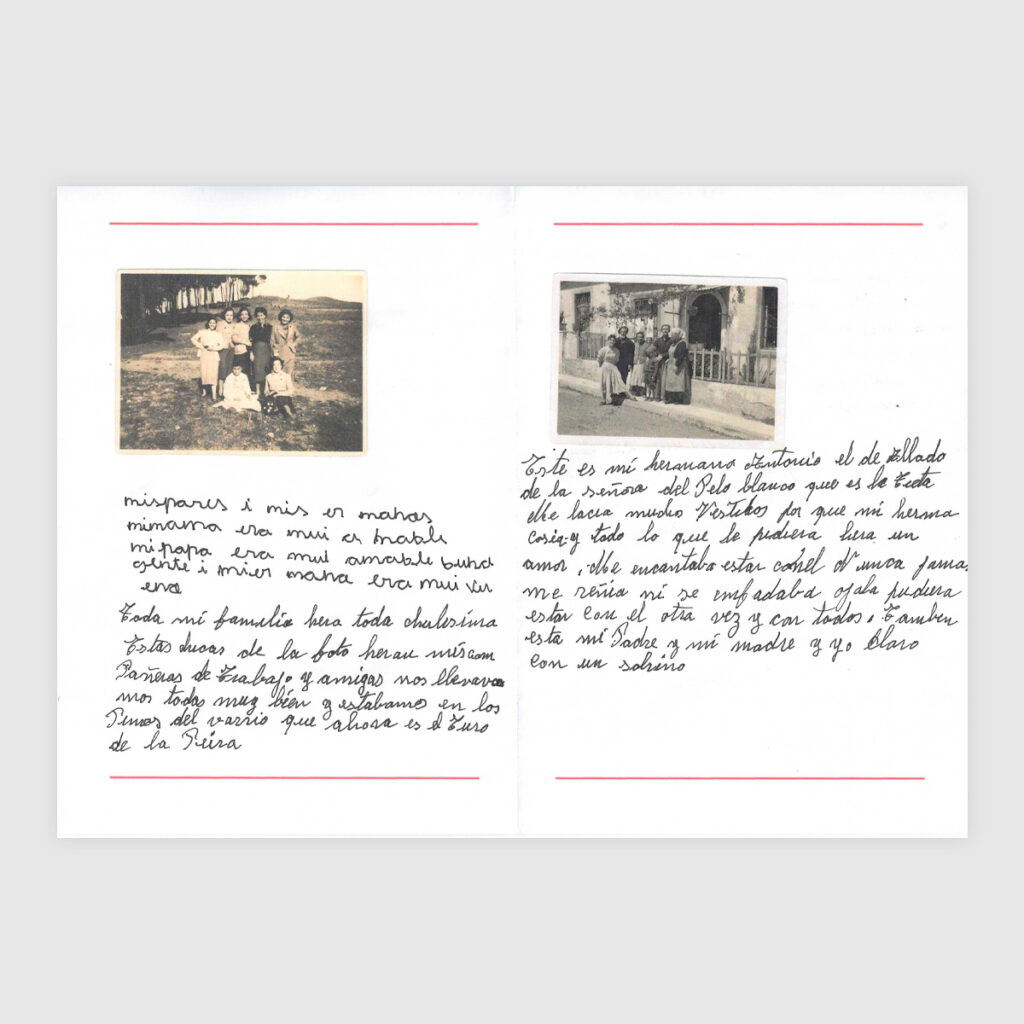 mispares i mis er manas
mimama era mui a mable
mi papa era mui amable buena
gente i mier mana era mui vu
ena
Toda mi familia hera toda
Estas chicas de la foto heran mis com
Pañeras de Trabajo y amigas nos llevava
mos todas muy bién y estabamos en los
Pinos del varrio que ahora es el Turo
de la Peira
Este es mi hermano Antonio el de Allado
de la señora del Pelo blanco que es la
Me acia mucho Vestidos por que mi herma
cosia y todo lo que le pidiera hera un
amor, Me encantaba estar con él Nunca jama
me reñia ni se emfadaba ojala pudiera
estar con el otra vez y con todos. Tambien
esta mi Padre y mi madre y yo Claro
con un sobrino